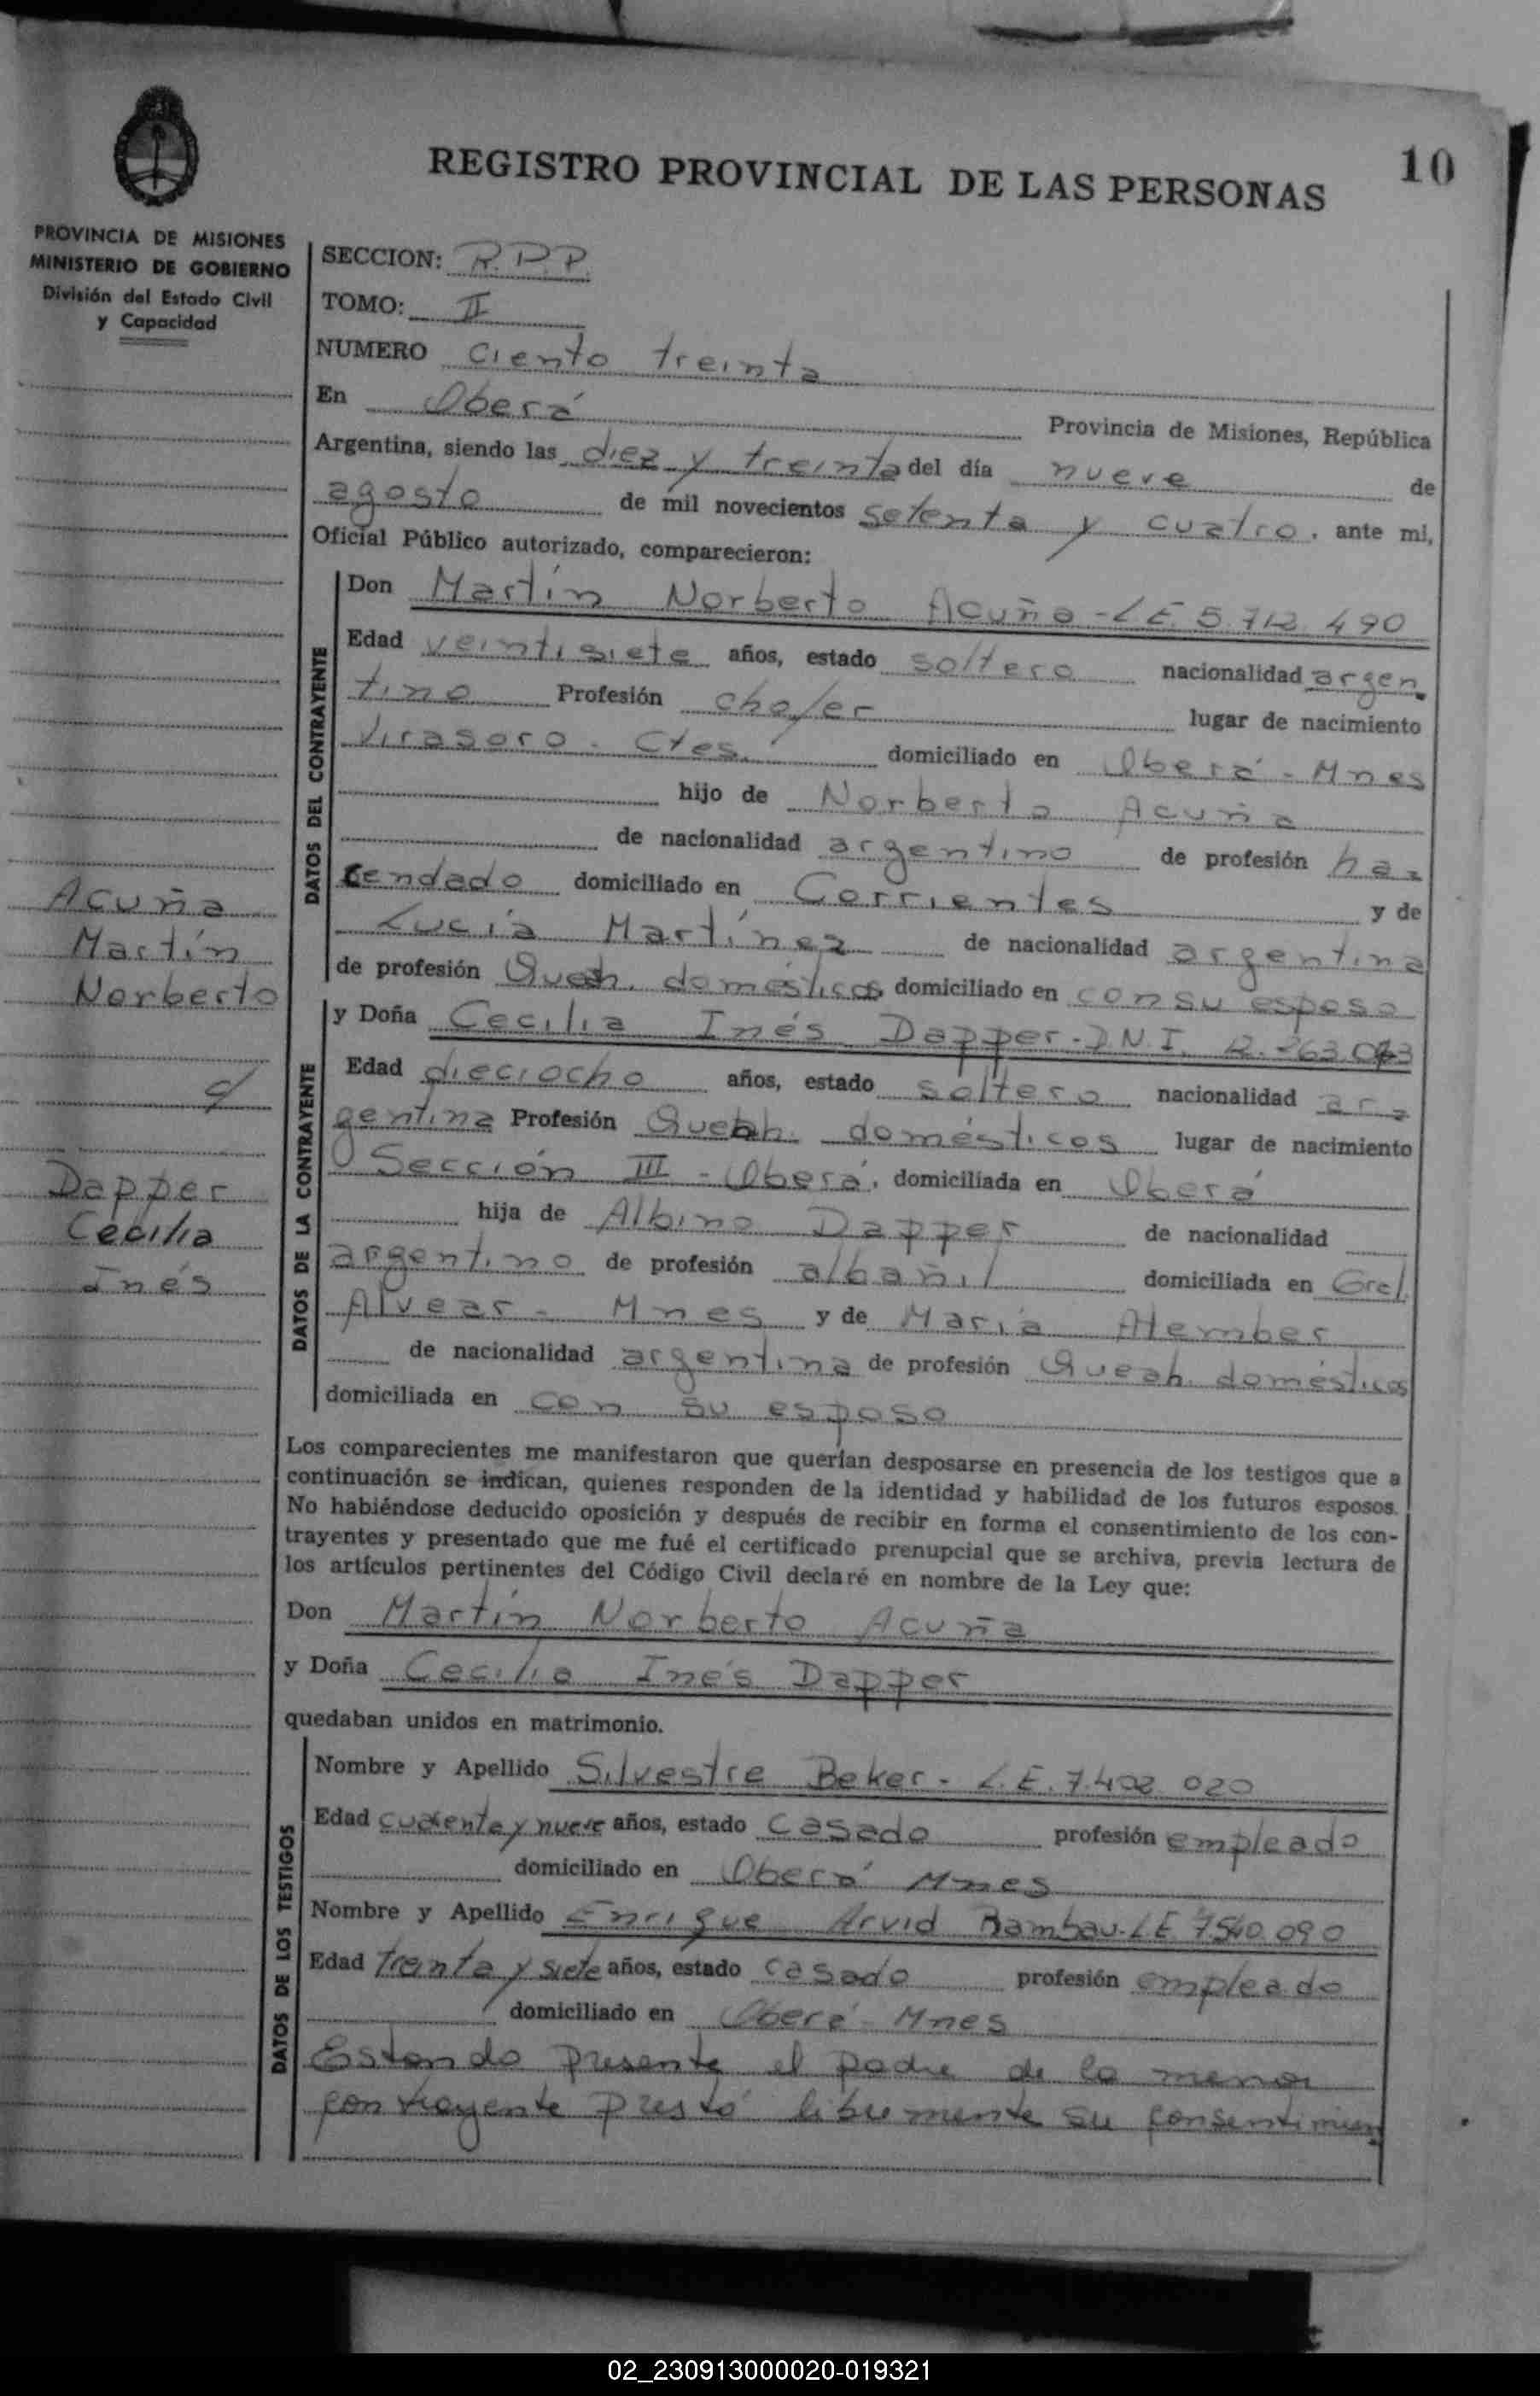 10
REGISTRO PROVINCIAL DE LAS PERSONAS
PROVINCIA DE MISIONES
MINISTERIO DE GOBIERNO
División del Estado Civil
y Capacidad
SECCION: R.P.P.
TOMO: II
NUMERO Ciento treinta
En Oberá Provincia de Misiones, República
Argentina, siendo las diez y treinta del día nueve de
agosto de mil novecientos setenta y cuatro, ante mi,
Oficial Público autorizado, comparecieron:
DATOS DEL CONTRAYENTE
Don Martín Norberto Acuña - L.E. 5.712.490
Edad veintisiete años, estado soltero nacionalidad argen
tino Profesión chofer lugar de nacimiento
Virasoro - Ctes. domiciliado en Oberá - Mnes
hijo de Norberto Acuña
de nacionalidad argentino de profesión ha-
cendado domiciliado en Corrientes y de
Lucía Martínez de nacionalidad argentina
de profesión Queh. domésticos domiciliado en con su esposo
DATOS DE LA CONTRAYENTE
y Doña Cecilia Inés Dapper - D.N.I. 12.263.
Edad dieciocho años, estado soltero nacionalidad ar-
gentina Profesión Queh. domésticos lugar de nacimiento
Sección III - Oberá, domiciliada en Oberá
hija de Albino Dapper de nacionalidad
argentino de profesión albañil domiciliada en Gral.
Alvear - Mnes y de María Atember
de nacionalidad argentina de profesión Queah. domésticos
domiciliada en con su esposo
Acuña
Martín
Norberto
c/
Dapper
Cecilia
Inés
Los comparecientes me manifestaron que querían desposarse en presencia de los testigos que a
continuación se indican, quienes responden de la identidad y habilidad de los futuros esposos.
No habiéndose deducido oposición y después de recibir en forma el consentimiento de los con-
trayentes y presentado que me fué el certificado prenupcial que se archiva, previa lectura de
los artículos pertinentes del Código Civil declaré en nombre de la Ley que:
Don Martín Norberto Acuña
y Doña Cecilia Inés Dapper
quedaban unidos en matrimonio.
DATOS DE LOS TESTIGOS
Nombre y Apellido Silvestre Beker - L.E. 7.402.020
Edad cuarenta y nueve años, estado casado profesión empleado
domiciliado en Oberá Mnes
Nombre y Apellido Enrique Arvid Rambau - L.E 7.540.090
Edad treinta y siete años, estado casado profesión empleado
domiciliado en Oberá - Mnes
Estando presente el padre de la menor
contrayente prestó libremente su consentimien
02_230913000020-019321